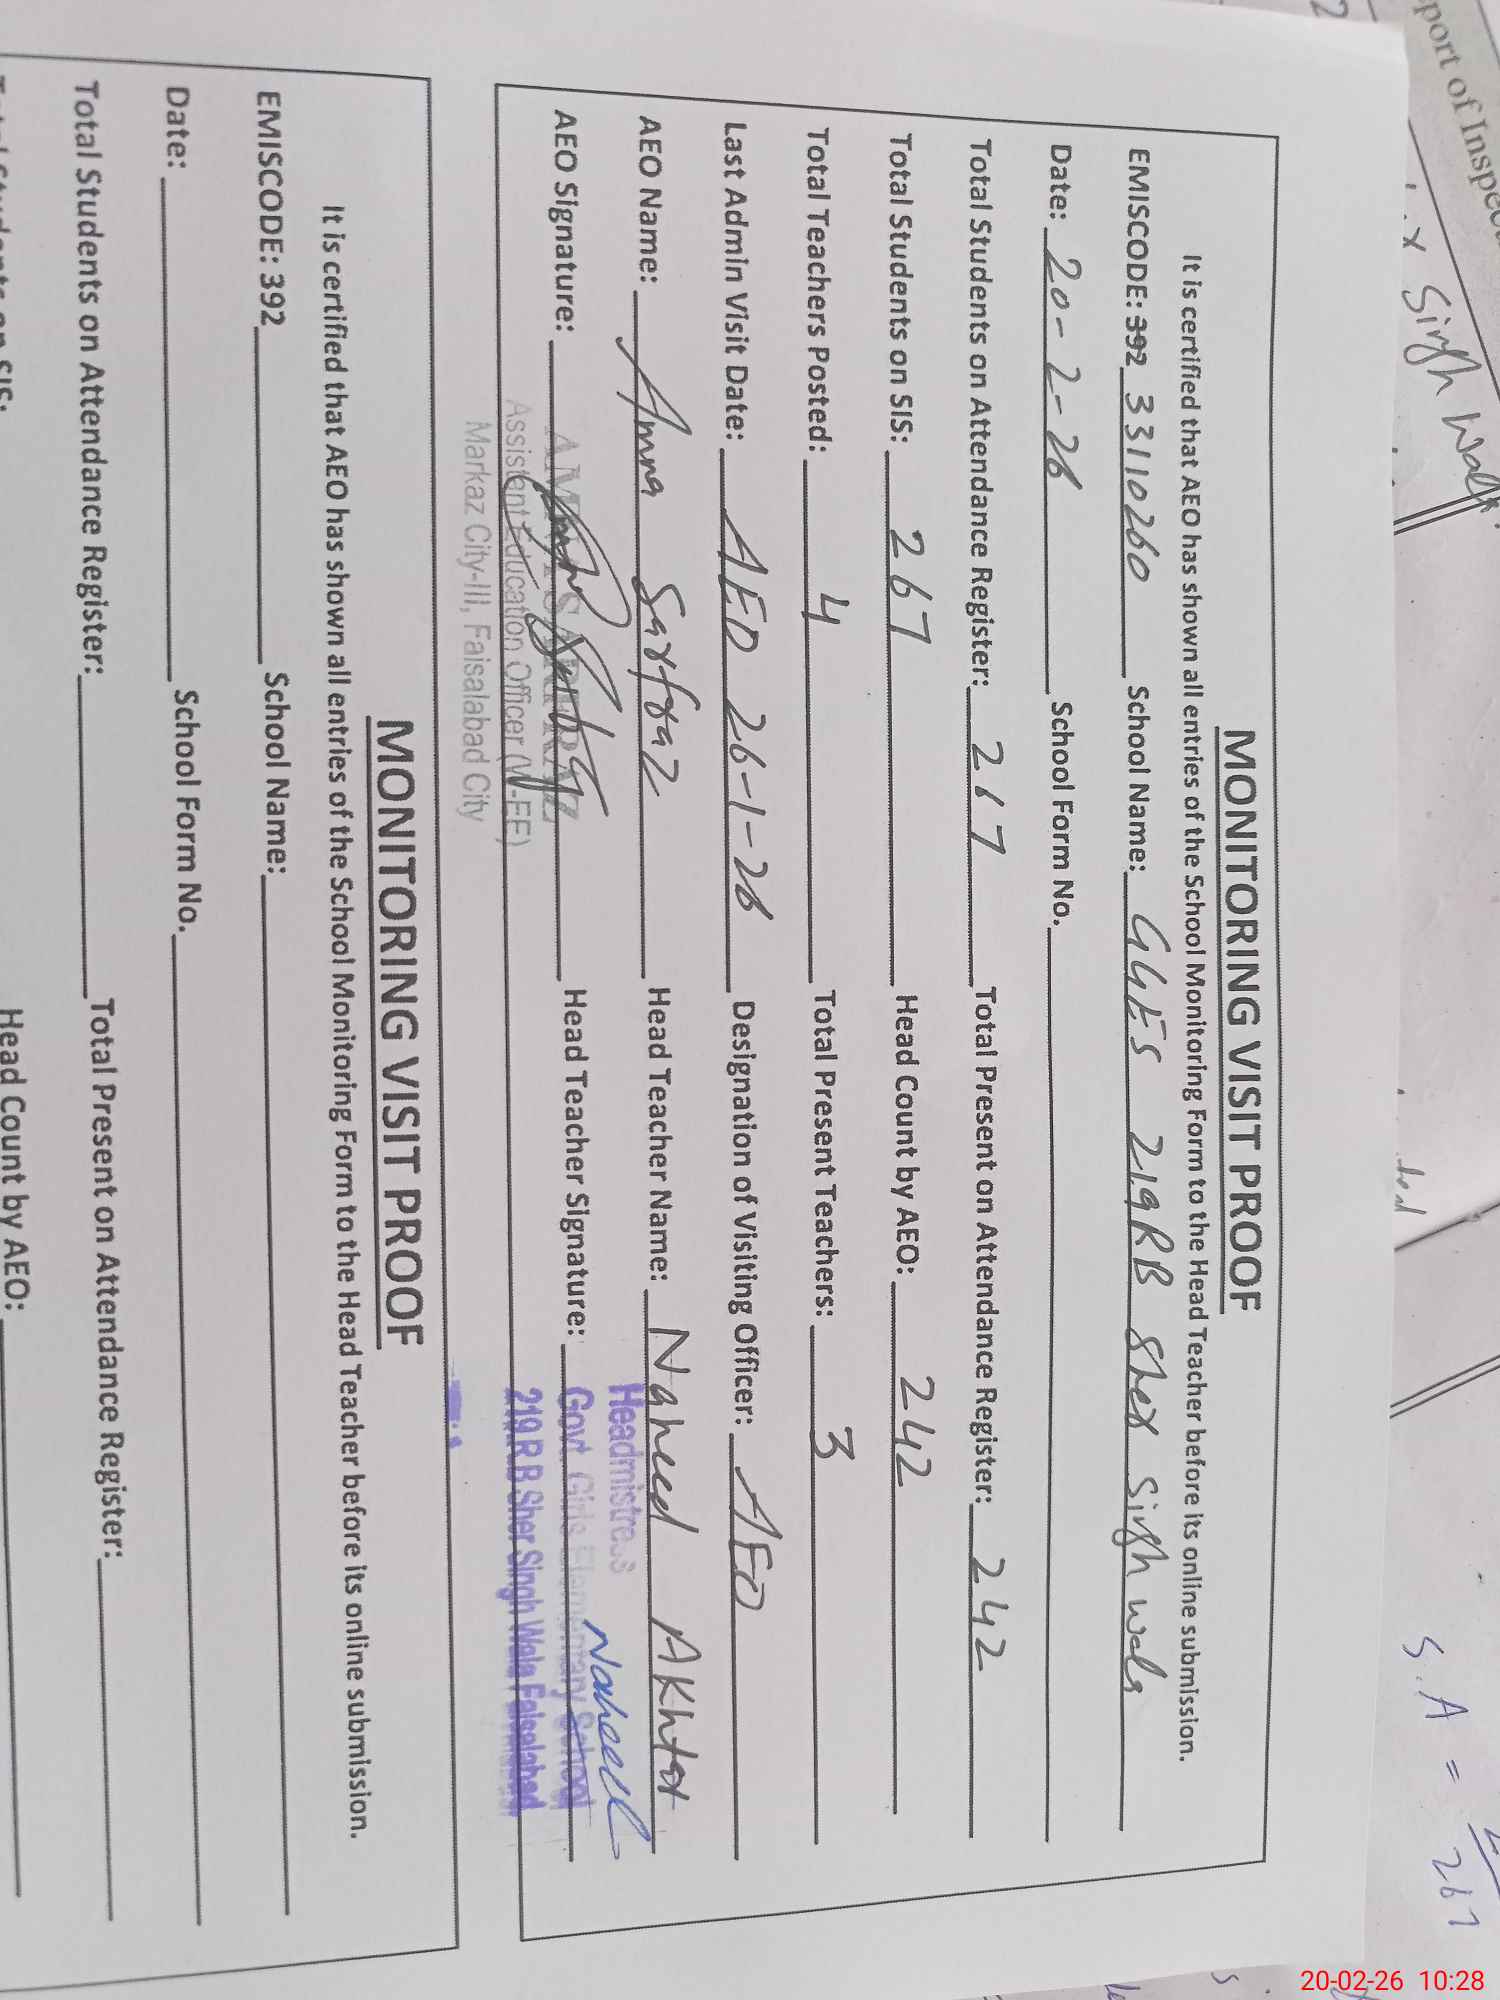 port of Inspec
Singh Wala
MONITORING VISIT PROOF
It is certified that AEO has shown all entries of the School Monitoring Form to the Head Teacher before its online submission.
EMISCODE: 392 33110260 School Name: GGES 219RB Sher Singh wala
Date: 20-2-26 School Form No.
Total Students on Attendance Register: 267 Total Present on Attendance Register: 242
Total Students on SIS: 267 Head Count by AEO: 242
Total Teachers Posted: 4 Total Present Teachers: 3
Last Admin Visit Date: AEO 26-1-26 Designation of Visiting Officer: AEO
AEO Name: Amna Sarfraz Head Teacher Name: Naheed Akhtar
AEO Signature: Head Teacher Signature: Naheed
AMNA SARFRAZ
Assistant Education Officer (W-EE)
Markaz City-III, Faisalabad City
Headmistress
Govt Girls Elementary School
219 R B Sher Singh Wala Faisalabad
MONITORING VISIT PROOF
It is certified that AEO has shown all entries of the School Monitoring Form to the Head Teacher before its online submission.
EMISCODE: 392 School Name:
Date: School Form No.
Total Students on Attendance Register: Total Present on Attendance Register:
Total Students on SIS: Head Count by AEO:
S.A =
267
20-02-26 10:28